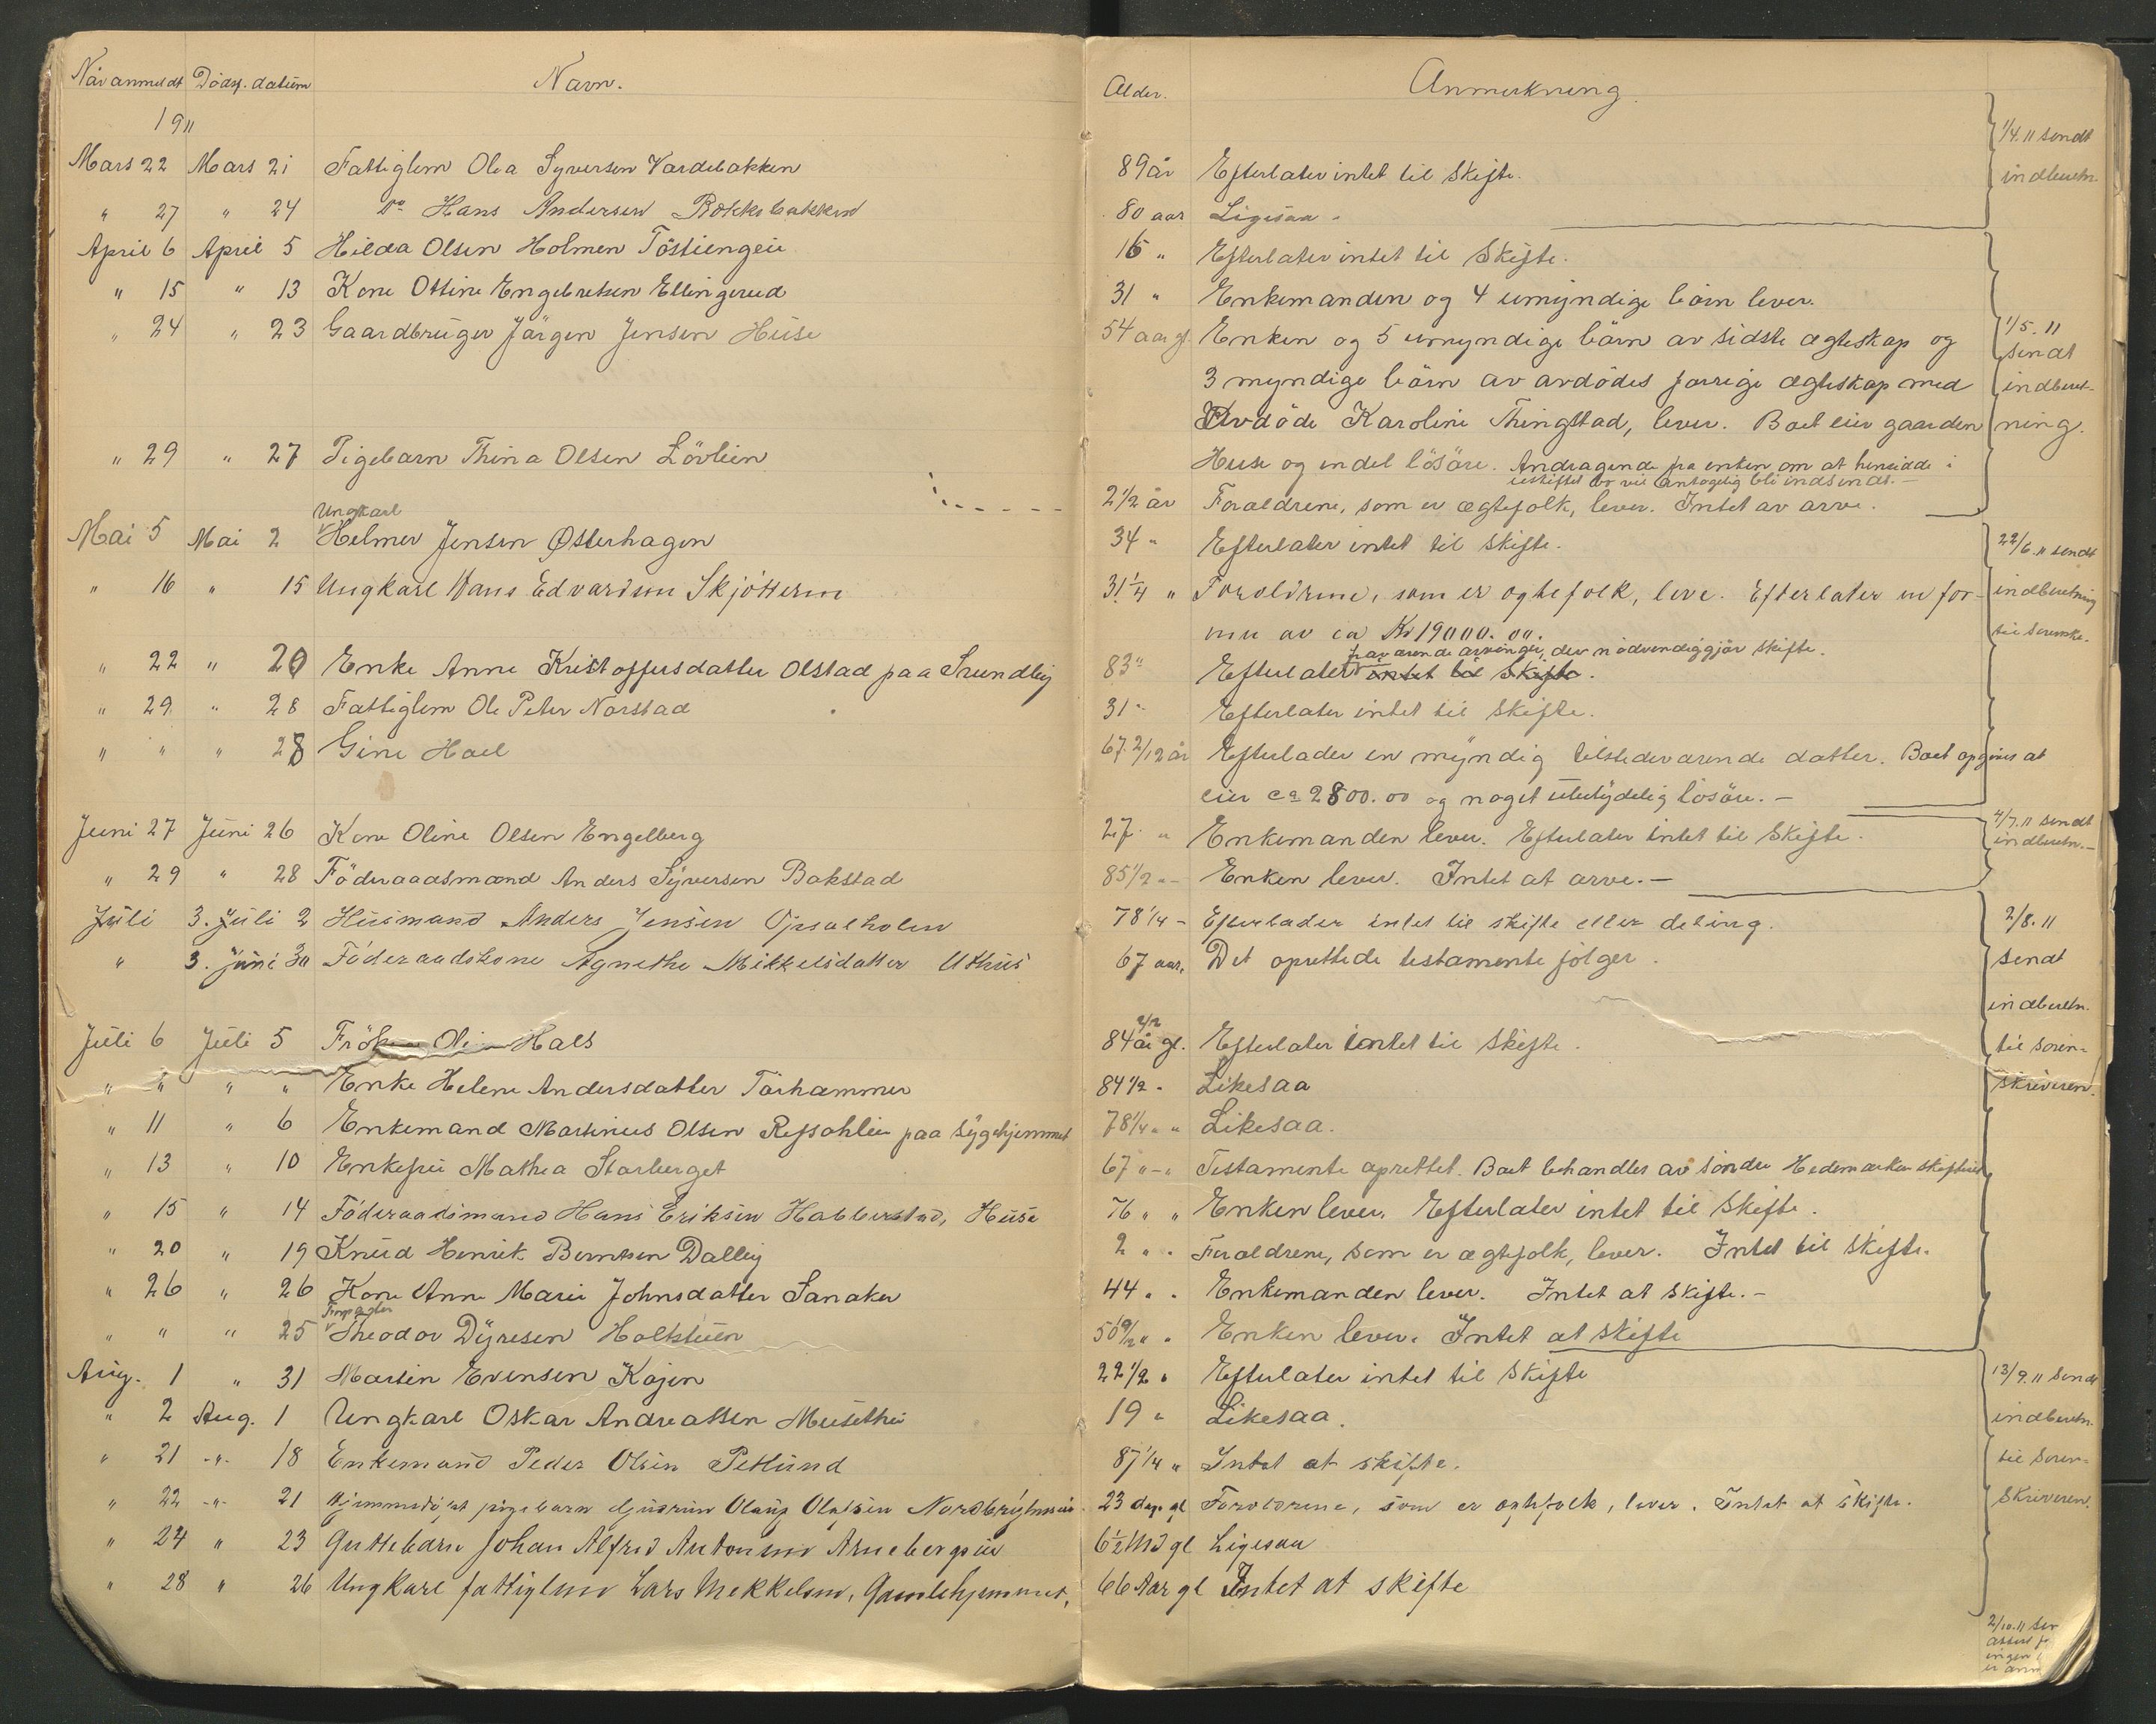 Når anmeldt Dödsf. datum Navn. Alder. Anmerkning.
1911
Mars 22 Mars 21 Fattiglem Olea Syversen Vardebakken 89 år Efterlater intet til Skifte.
" 27 " 24 Do Hans Andersen 80 aar Ligesaa.
1/4.11 sendt
indberetn.
April 6 April 5 Hilda Olsen Holmen 16 " Efterlater intet til Skifte.
" 15 " 13 Kone Ottine Engebretsen Ellingerud 31 " Enkemanden og 4 umyndige börn lever.
" 24 " 23 Gaardbruger Jörgen Jensen Huse 54 aar gl. Enken og 5 umyndige börn av sidste ægteskap og
3 myndige börn av avdödes forrige ægteskap med
Avdöde Karoline Thingstad, lever. Boet eier gaarden
Huse og endel lösöre. Andragende fra enken om at hensidde i
uskiftet bo vil antagelig bli indsendt.—
1/5.11
sendt
indberet-
ning.
" 29 " 27 Pigebarn Thina Olsen Lövlien 2 1/2 år Forældrene, som er ægtefolk, lever. Intet av arve.
Ungkarl
Mai 5 Mai 2 Helmer Jensen Østerhagen 34 " Efterlater intet til skifte.
" 16 " 15 Ungkarl Hans Edvardsen 31 1/4 " Forældrene, som er ægtefolk, leve. Efterlater en for-
mue av ca Kr 19000.00.
22/6.11 sendt
indberetning
til
fraværende arvinger, der nödvendiggjör skifte.
" 22 " 20 Enke Anne Kristoffersdatter Olstad paa 83 " Efterlater intet til Skifte.
" 29 " 28 Fattiglem Ole Peter Norstad 31 " Efterlater intet til skifte.
" " " 28 Gine Hoel 67 2/12 år Efterlader en myndig tilstedeværende datter. Boet opgives at
eier ca 2800.00 og noget ubetydelig lösöre.—
Juni 27 Juni 26 Kone Oline Olsen Engelberg 27 " Enkemanden lever. Efterlater intet til Skifte.
" 29 " 28 Föderaadsmand Anders Syversen Bakstad 85 1/2 " Enken lever. Intet at arve.—
4/7.11 sendt
indberetn.—
Juli 3. Juli 2 Husmand Anders Jensen Opsalholen 78 1/4 - Efterlader intet til skifte eller deling.
" 3. Juni 30 Föderaadskone Agnethe Mikkelsdatter Uthus 67 aar. Det oprettede testamente fölger.
2/8.11
sendt
indberetn.
til soren-
skriveren.
Juli 6 Juli 5 Fröken Hals 84 år gl. Efterlater intet til Skifte.
" " " " Enke Helene Andersdatter Torhammer 84 1/2 " Likesaa
" 11 " 6 Enkemand Martinius Olsen paa Sygehjemmet 78 1/4 " " Likesaa.
" 13 " 10 Enkefru Mathea Storberget 67 " - " Testamente oprettet. Boet behandles av söndre Hedemarken skifteret
" 15 " 14 Föderaadsmand Hans Eriksen Habberstad, Huse 76 " " Enken lever. Efterlater intet til Skifte.
" 20 " 19 Knud Henrik Berntsen Dalby 2 " " Forældrene, som er ægtefolk, lever. Intet til skifte.
" 26 " 26 Kone Anne Marie Johnsdatter Sanaker 44 " " Enkemanden lever. Intet at skifte.—
Forpagter
" " " 25 Theodor Dyresen Holtstuen 56 " " Enken lever. Intet at skifte
Aug. 1 " 31 Martin Evensen Kojen 22 1/2 " Efterlater intet til Skifte
" 2 Aug. 1 Ungkarl Oskar Andreassen 19 " Likesaa.
" 21 -"- 18 Enkemand Peder Olsen Petlund 87 1/4 " Intet at skifte.
" 22 -"- 21 pigebarn Olaug Olafsen 23 dage gl Forældrene, som er ægtefolk, lever. Intet at skifte.
" 24 " 23 Guttebarn Johan Alfred Antonsen 6 1/2 Md gl Ligesaa
" 28 " 26 Ungkarl fattiglem Lars Mekkelsen, Gamlehjemmet, 66 Aar gl Intet at skifte
13/9.11 sendt
indberetn.
til soren-
skriveren.
2/10.11